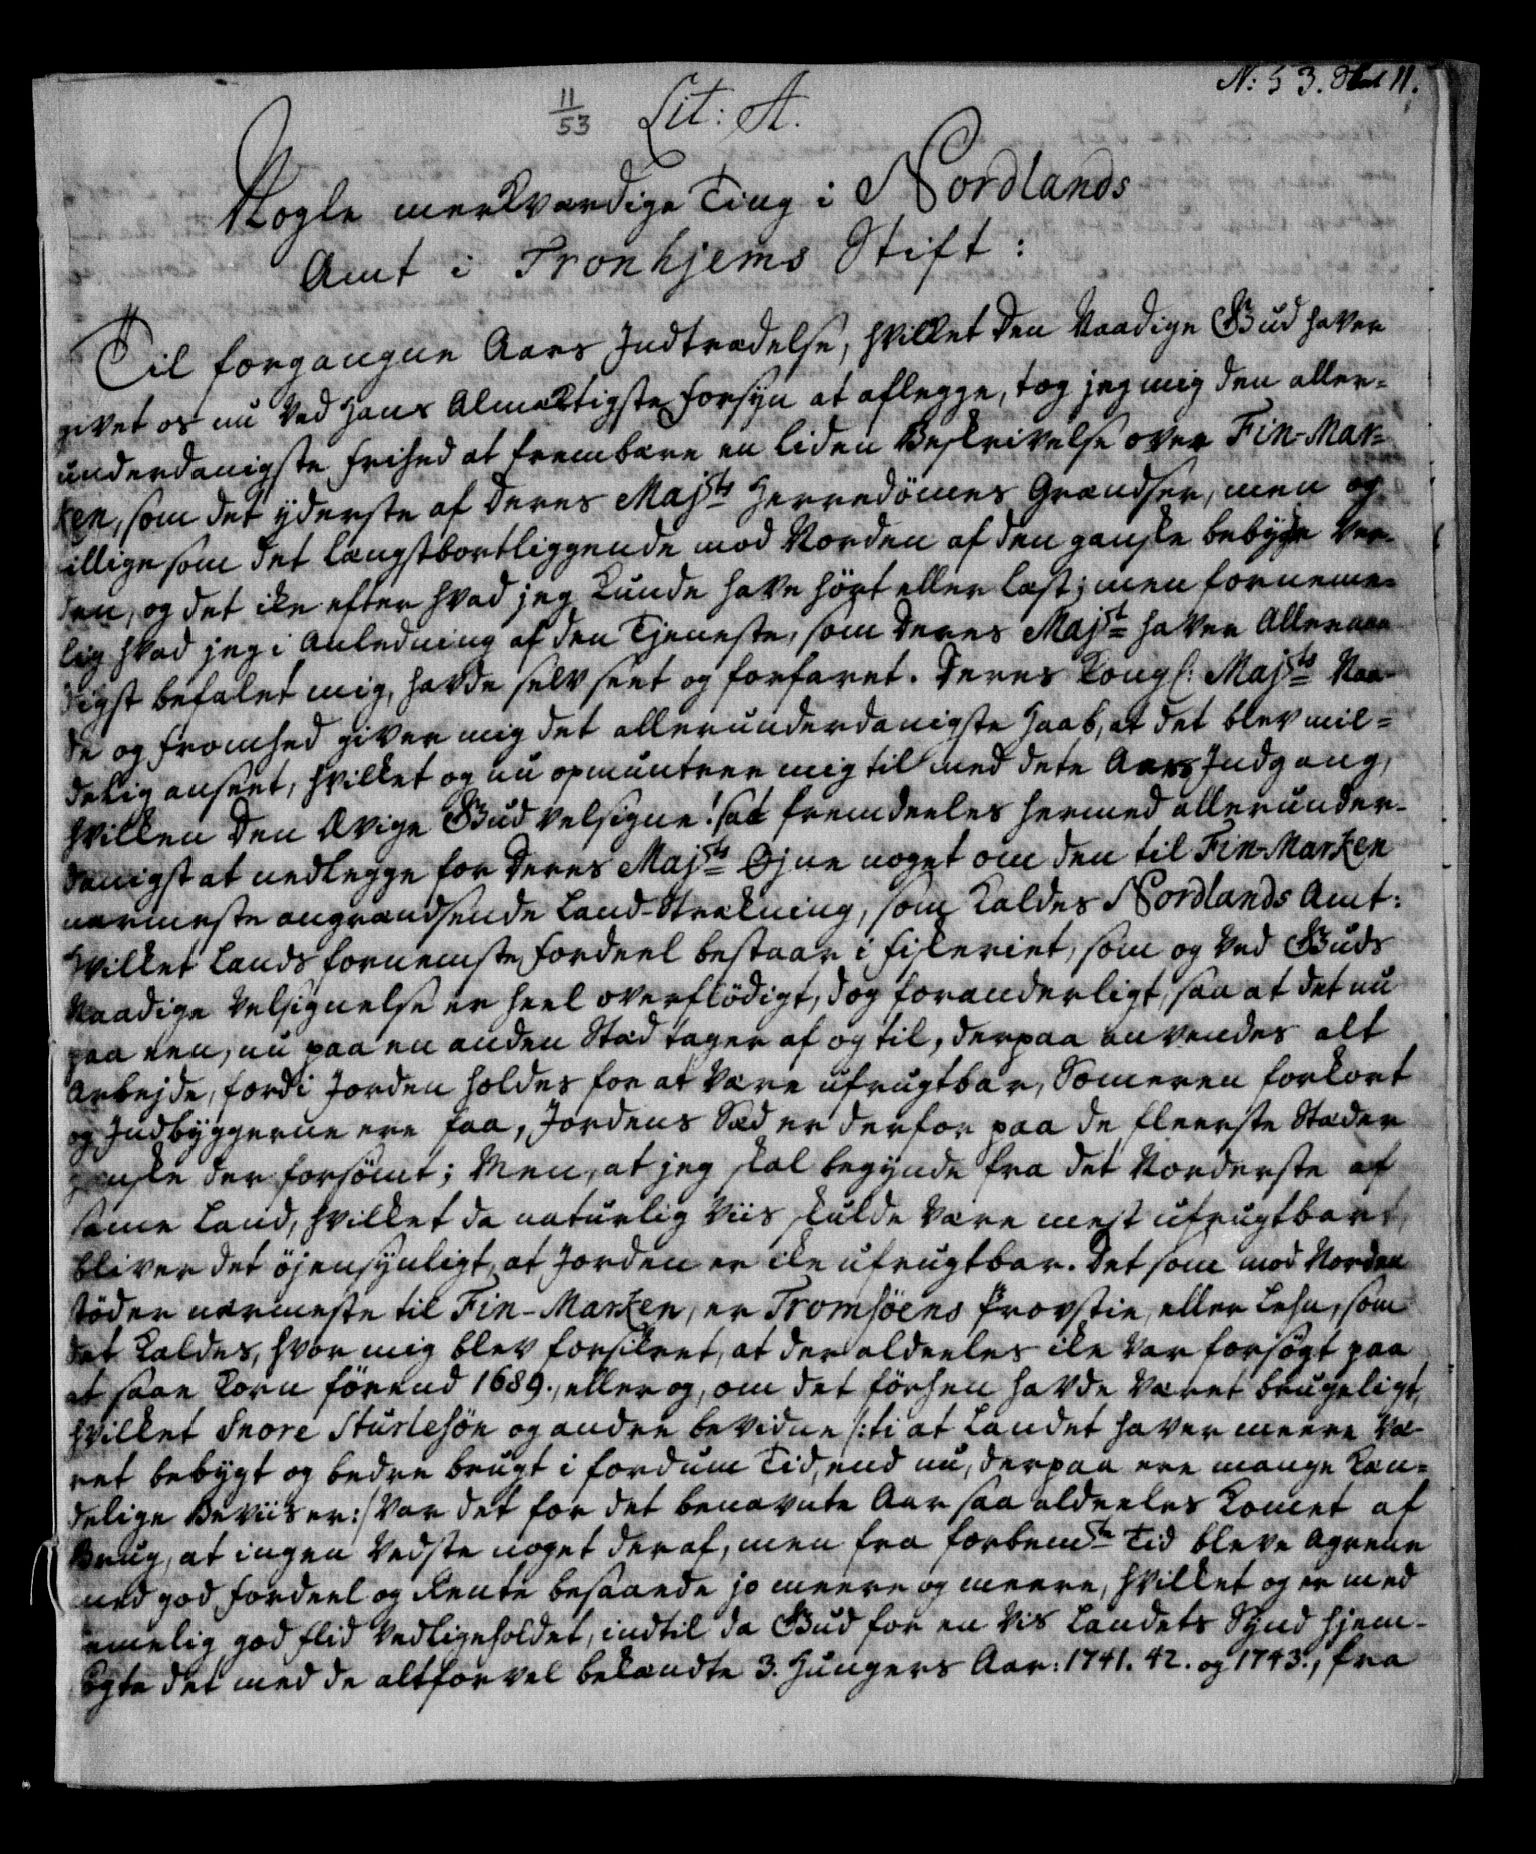 N: 53. 11.
11/53
Lit: A.
Nogle merkværdige Ting i Nordlands
Amt i Tronhjems Stift:
Til forgangne Aars Indtrædelse, hvilket den Naadige Gud haver
givet os nu ved Hans Almægtigste Forsyn at aflegge, tog jeg mig den aller-
underdanigste Frihed at frembære en liden Beskrivelse over Fin-Mar-
ken, som det yderste af Deres Majsts Herredömes Grændser, men og
tillige som det længstbortliggende mod Norden af den ganske bebygte Ver-
den, og det ike efter hvad jeg kunde have hört eller læst; men forneme-
lig hvad jeg i Anledning af den Tjeneste, som Deres Majst haver Allernaa-
digst befalet mig, havde selv seet og forfaret. Deres Kongl: Majsts Naa-
de og Fromhed giver mig det allerunderdanigste Haab, at det blev mil-
delig anseet, hvilket og nu opmuntrer mig til med dete Aars Indgang,
hvilken den Ævige Gud velsigne! fremdeeles hermed allerunder-
danigst at nedlegge for Deres Majsts Öjne noget om den til Fin-Marken
nærmeste angrændsende Land-Strækning, som kaldes Nordlands Amt:
Hvilket Lands fornemste Fordeel bestaar i Fiskeriet, som og ved Guds
Naadige Velsignelse er heel overflödigt, dog foranderligt, saa at det nu
paa een, nu paa en anden Stæd tager af og til, derpaa anvendes alt
Arbejde, fordi Jorden holdes for at være ufrugtbar, Someren for kort
og Indbyggerne ere faa, Jordens Sæd er derfor paa de fleerste Stæder
ganske der forsömt; Men, at jeg skal begynde fra det Norderste af
same Land, hvilket da naturlig Viis skulde være mest ufrugtbart,
bliver det öjensynligt, at Jorden er ike ufrugtbar. Det som mod Norden
stöder nærmeste til Fin-Marken, er Tromsöens Provstie, eller Lehn, som
det kaldes, hvor mig blev forsikret, at der aldeeles ike var forsögt paa
at saae Korn förend 1689., eller og, om det förhen havde været brugeligt,
hvilket Snore Sturlesön og andre bevidne /:ti at Landet haver meere væ-
ret bebygt og bedre brugt i fordum Tid, end nu, derpaa ere mange kien-
delige Beviiser:/ var det for det benævnte Aar saa aldeeles komet af
Brug, at ingen vedste noget deraf, men fra forbemte Tid bleve Agrene
med god Fordeel og Rente besaaede jo meere og meere, hvilket og er med
temelig god Flid vedligeholdet, indtil da Gud for en vis Landets Synd hjem-
sögte det med de altforvel bekandte 3. Hungers Aar: 1741. 42. og 1743., fra